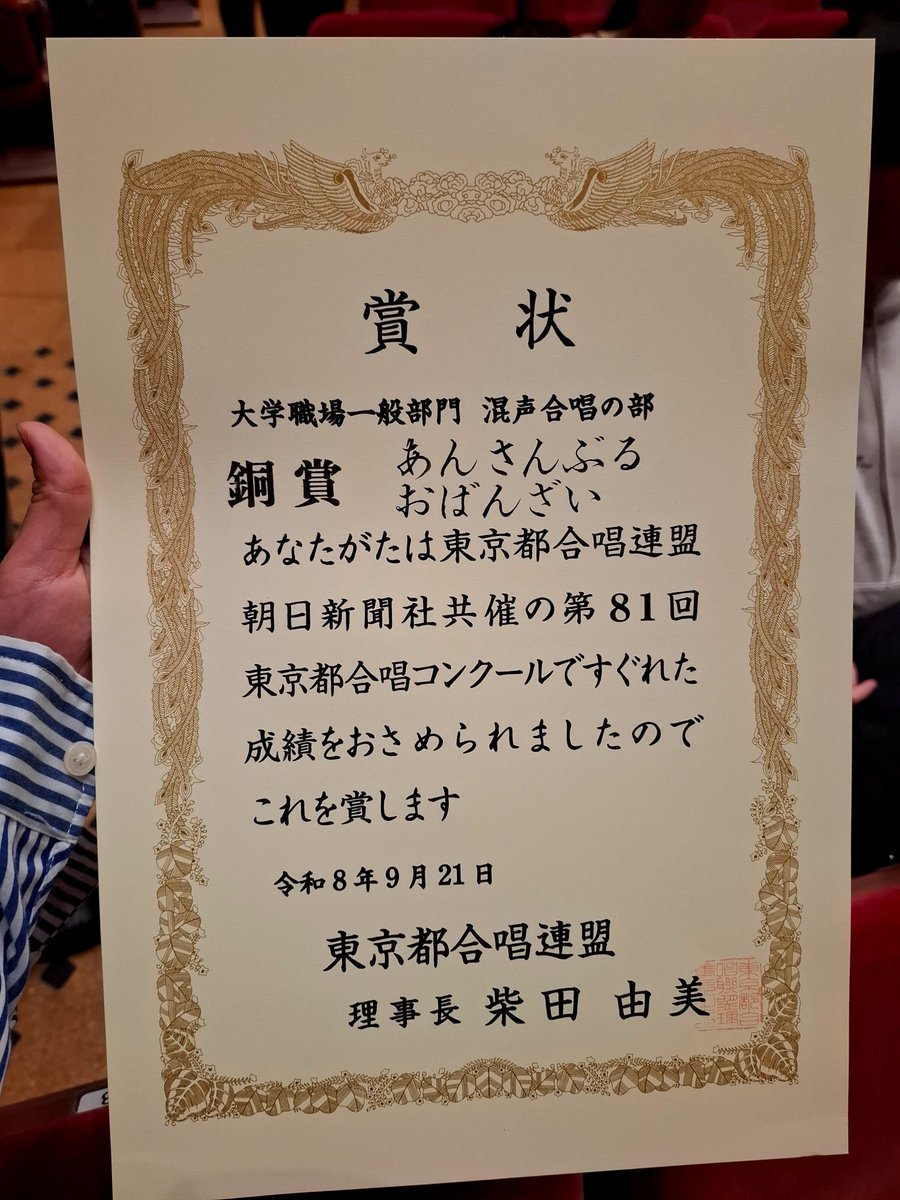 賞状
大学職場一般部門 混声合唱の部
銅賞 あんさんぶる
おばんざい
あなたがたは東京都合唱連盟
朝日新聞社共催の第81回
東京都合唱コンクールですぐれた
成績をおさめられましたので
これを賞します
令和8年9月21日
東京都合唱連盟
理事長 柴田 由美